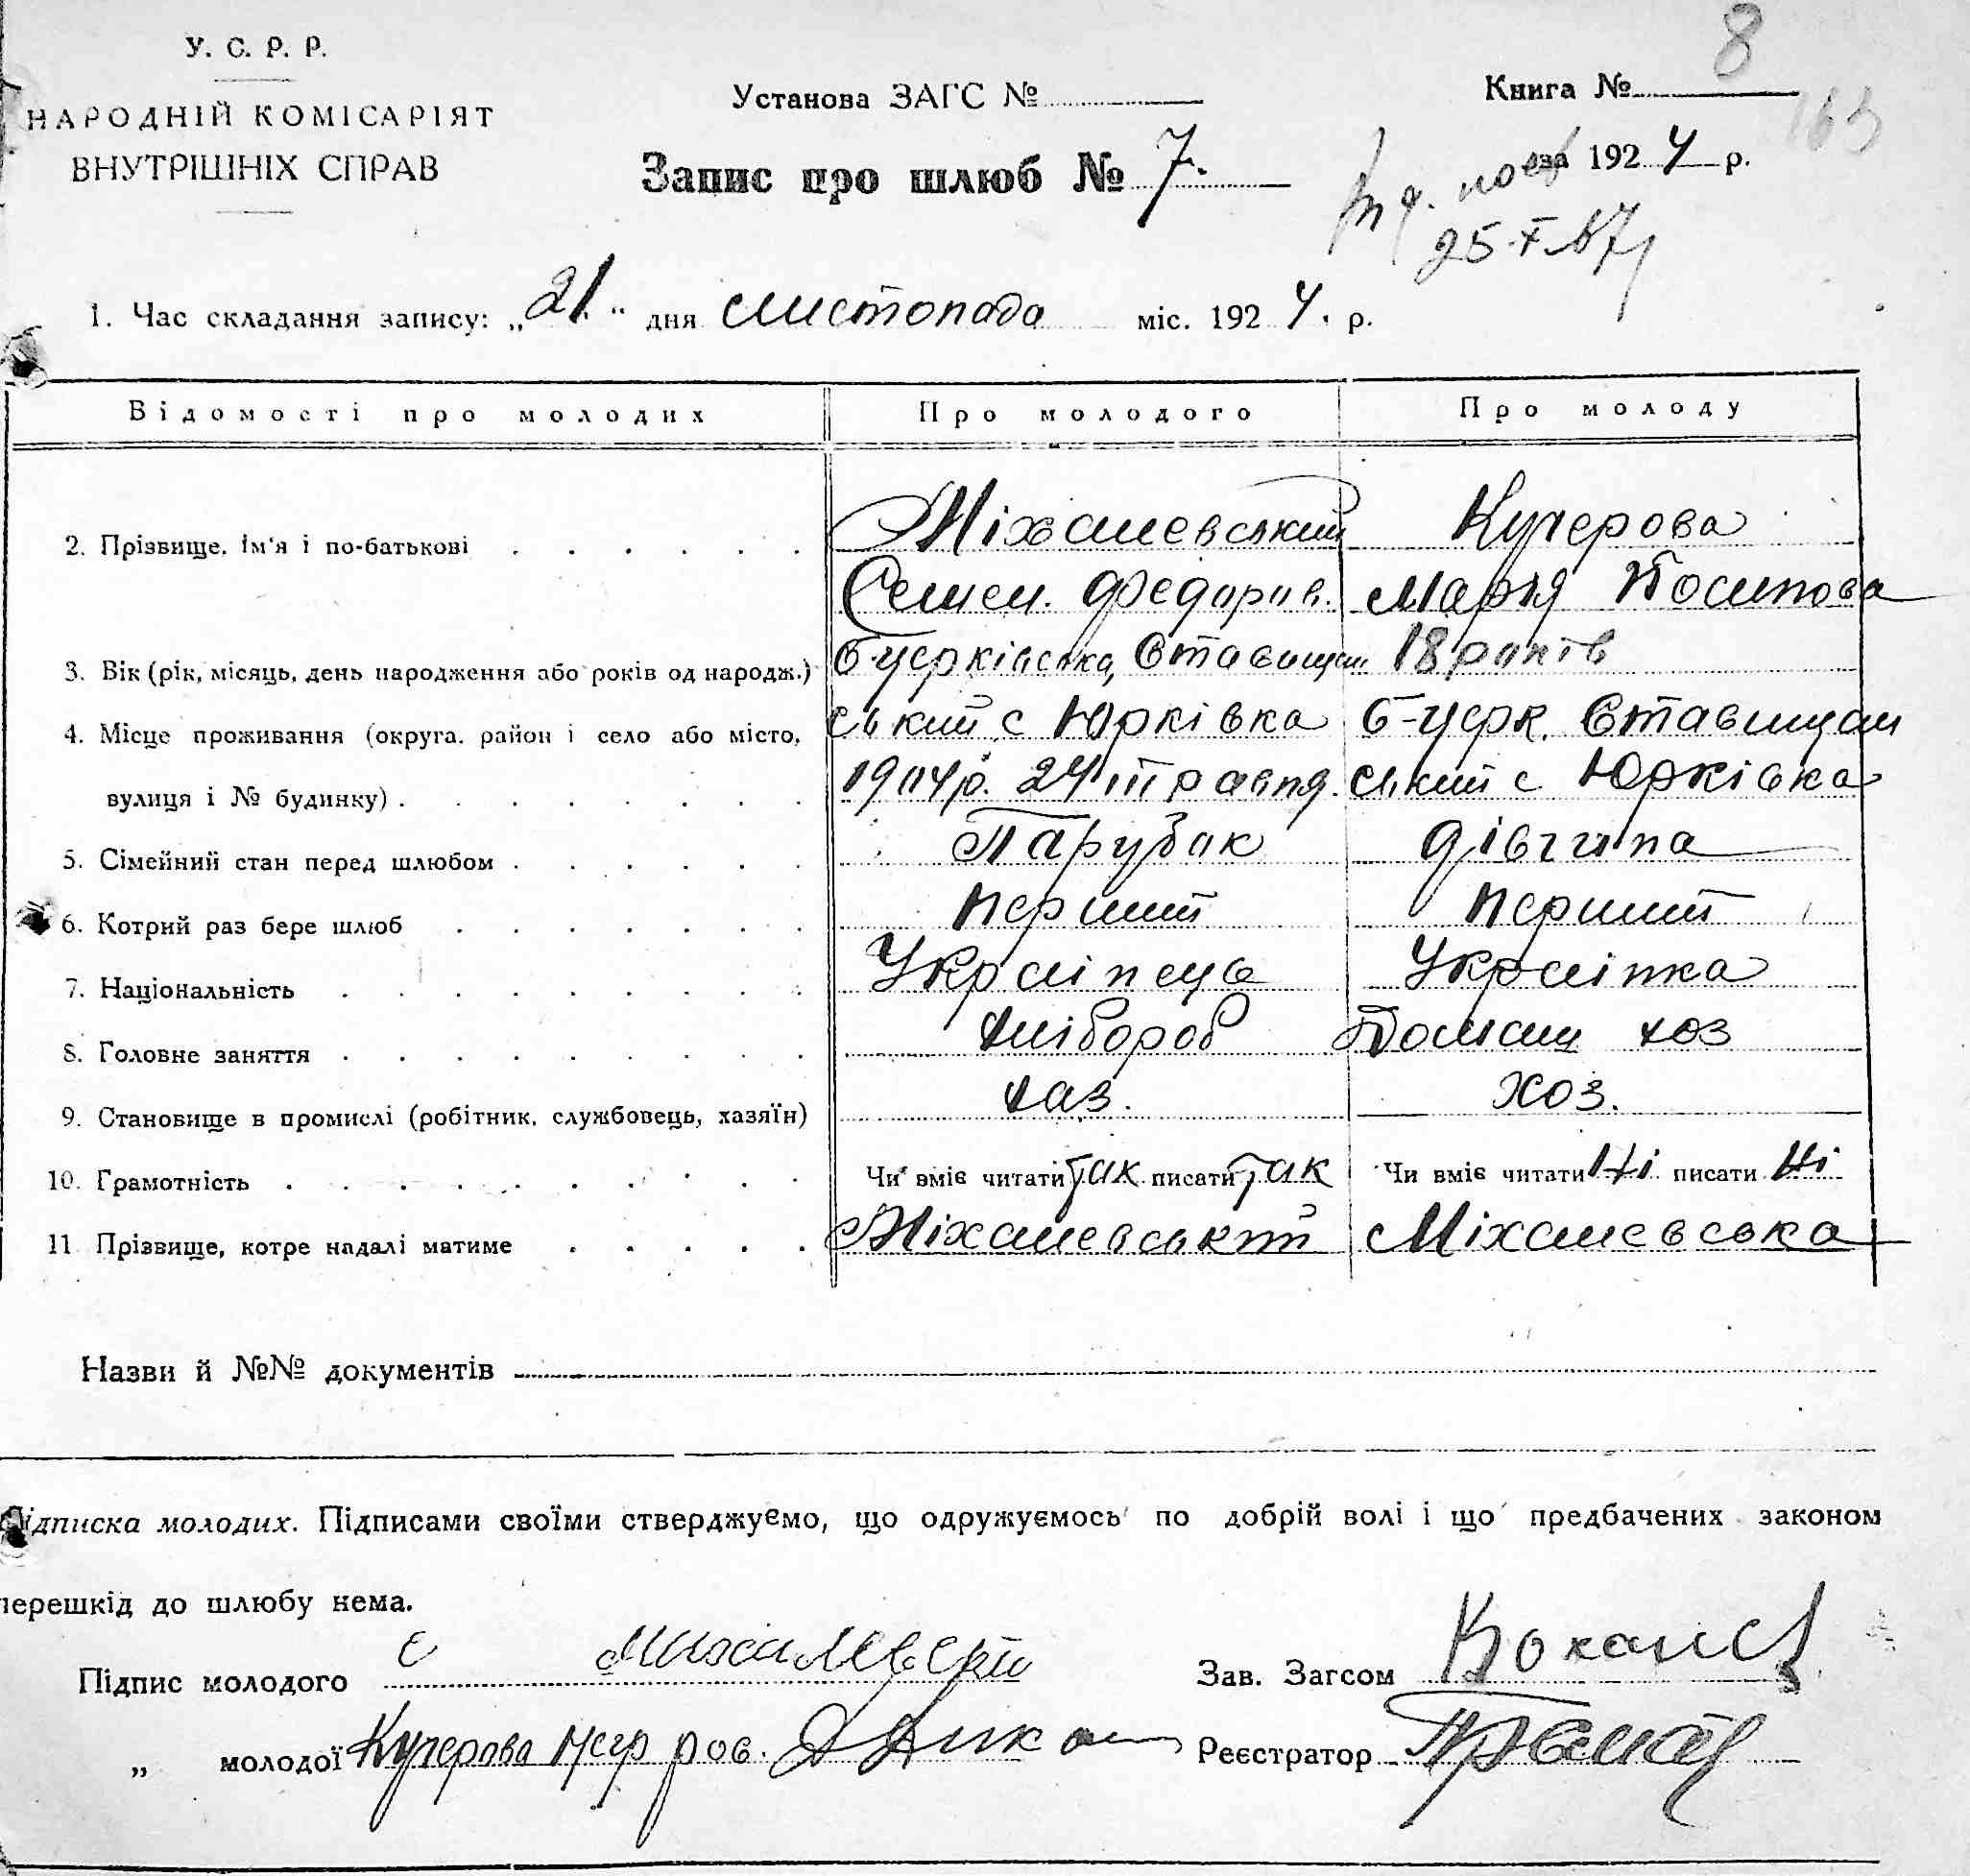 У. С. Р. Р.
НАРОДНІЙ КОМІСАРІЯТ
ВНУТРІШНІХ СПРАВ
Установа ЗАГС №
Книга № 8
163
Запис про шлюб № 7.
за 1924 р.
25.X.47
1. Час складання запису: „21.“ дня листопада міс. 1924. р.
Відомості про молодих Про молодого Про молоду
2. Прізвище, ім'я і по-батькові Міхалевський Кучерова
Семен. Федоров. Марія Йосипова
3. Вік (рік, місяць, день народження або років од народж.) Б-церківська, Ставищан 18 років
4. Місце проживання (округа, район і село або місто, ський с Юрківка Б-церк. Ставищан
вулиця і № будинку) 1904р. 24 травня. ський с Юрківка
5. Сімейний стан перед шлюбом Парубок дівчина
6. Котрий раз бере шлюб перший перший
7. Національність Українець Українка
8. Головне заняття хлібороб Домаш хоз
9. Становище в промислі (робітник, службовець, хазяїн) хаз. хоз.
10. Грамотність Чи вміє читати так писати так Чи вміє читати Ні писати Ні
11 Прізвище, котре надалі матиме Міхалевський Міхалевська
Назви й №№ документів
Підписка молодих. Підписами своїми стверджуємо, що одружуємось по добрій волі і що предбачених законом
перешкід до шлюбу нема.
Підпис молодого с Михалевский Зав. Загсом
„ молодої Кучерова Реєстратор